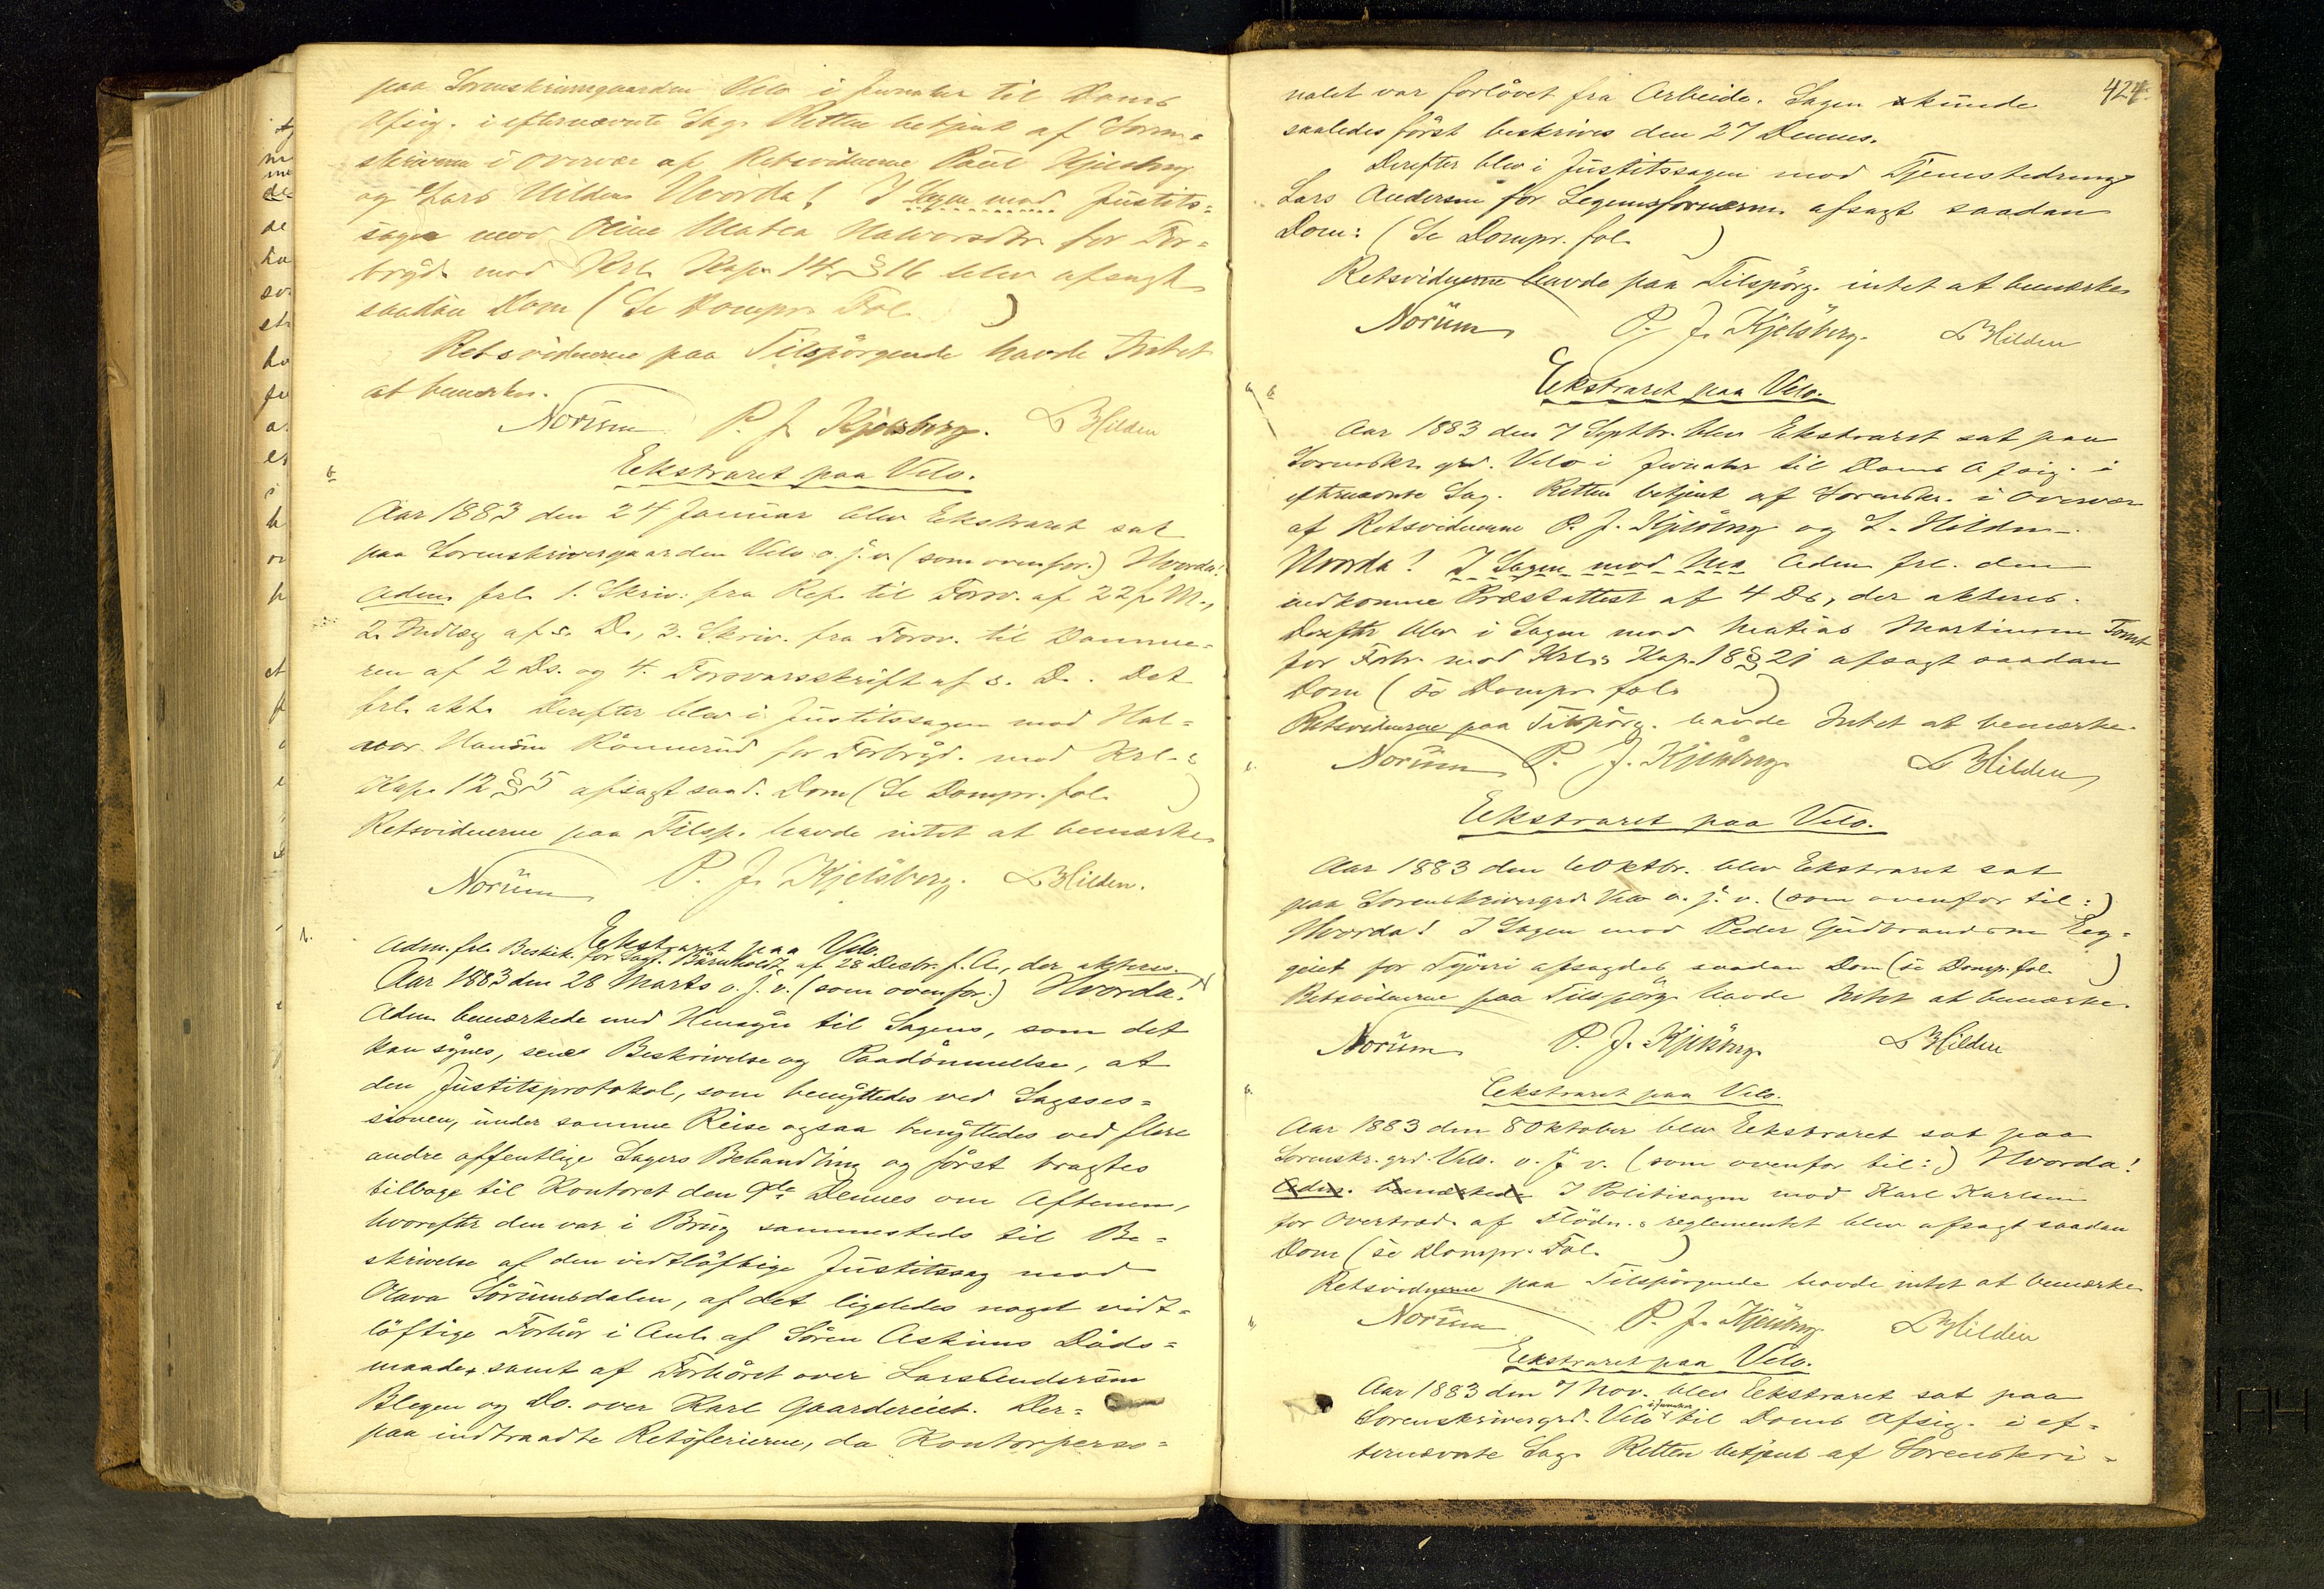 paa Sorenskrivergaarden Velo i Furnæs til Doms
Afsig. i efternævnte Sag. Retten betjent af Soren-
skriveren i Overvær af Retsvidnerne Paul Kjelsberg
og Lars Hilden Hvorda! I Sagen mod Justits-
sagen mod Oline Matea Halvorsdtr. for For-
bryd. mod Krl. Kap. 14 § 16 blev afsagt
saadan Dom (Se Dompr. Fol. )
Retsvidnerne paa Tilspørgende havde Intet
at bemærke.
Norüm P. J. Kjelsberg. L Hilden
Eekstraret paa Velo.
Aar 1883 den 24 Januar blev Eekstraret sat
paa Sorenskrivergaarden Velo o. s. v. (som ovenfor.) Hvorda!
Adm. frl. 1. Skriv. fra Rep. til Forsv. af 22 f. M.,
2. Indlæg af s. D., 3. Skriv. fra Forsv. til Domme-
ren af 2 Ds. og 4. Forsvarsskrift af s. D. Det
frl. akt. Derefter blev i Justitssagen mod Hal-
vor Hansen Rönnerud for Forbryd. mod Krl.s
Kap. 12 § 5 afsagt saad. Dom (Se Dompr. fol. )
Retsvidnerne paa Tilsp. havde intet at bemærke
Norüm P. J. Kjelsberg. L Hilden.
Eekstraret paa Velo.
Adm. frl. Beskik. for Sagf. Bärnholdt af 28 Decbr. f. A., der akteres.
Aar 1883 den 28 Marts o. s. v. (som ovenfor.) Hvorda!
Adm. bemærkede med Hensyn til Sagens, som det
kan synes, sene Beskrivelse og Paadömmelse, at
den Justitsprotokol, som benyttedes ved Sagsses-
sionen, under samme Reise ogsaa benyttedes ved flere
andre offentlige Sagers Behandling og först bragtes
tilbage til Kontoret den 9de Dennes om Aftenen,
hvorefter den var i Brug sammesteds til Be-
skrivelse af den vidtlöftige Justitssag mod
Olava Sörumsdalen, af det ligeledes noget vidt-
löftige Forhör i Anl. af Sören Askims Döds-
maade, samt af Forhöret over Lars Andersen
Blegen og Do. over Karl Gaardereiet. Der-
paa indtraadte Retsferierne, da Kontorperso-
424
nalet var forlövet fra Arbeide. Sagen kunde
saaledes först beskrives den 27 Dennes.
Derefter blev i Justitssagen mod Tjenestedreng
Lars Andersen for Legemsfornærm. afsagt saadan
Dom: (Se Dompr. fol. )
Retsvidnerne havde paa Tilspörg. intet at bemærke
Norüm P. J. Kjelsberg. L Hilden
Eekstraret paa Velo.
Aar 1883 den 7 Septbr. blev Ekstraret sat paa
Sorenskr. grd. Velo i Furnæs til Doms Afsig. i
efternævnte Sag. Retten betjent af Sorenskr. i Overvær
af Retsvidnerne P. J. Kjelsberg og L. Hilden.
Hvorda! I Sagen mod Mea Adm. frl. den
indkomne Præstattest af 4 Ds, der akteres.
Derefter blev i Sagen mod Matias Martinsen Tomt
for Forbr. mod Krl.s Kap. 18 § 21 afsagt saadan
Dom (se Dompr. fol. )
Retsvidnerne paa Tilspörg. havde Intet at bemærke.
Norüm P. J. Kjelsberg L Hilden
Ekstraret paa Velo.
Aar 1883 den 6 Oktbr. blev Eekstraret sat
paa Sorenskrivergrd. Velo o. s. v. (som ovenfor til:)
Hvorda! I Sagen mod Peder Gudbrandsen Eeg-
geiet for Tyveri afsagdes saadan Dom (se Dompr. fol. )
Retsvidnerne paa Tilspörg. havde Intet at bemærke.
Norüm P. J. Kjelsberg L Hilden
Eekstraret paa Velo.
Aar 1883 den 8 Oktober blev Eekstraret sat paa
Sorenskr. grd. Velo. o. s. v. (som ovenfor til:) Hvorda!
Adm. bemærkede I Politisagen mod Karl Karlsen
for Overtræd. af Flödn.s reglementet blev afsagt saadan
Dom (se Dompr. Fol. )
Retsvidnerne paa Tilspörgende havde intet at bemærke
Norüm P. J. Kjelsberg L Hilden
Eekstraret paa Velo.
Aar 1883 den 7 Nov. blev Eekstraret sat paa
Sorenskrivergrd. Velo i Furnæs til Doms Afsig. i ef-
ternævnte Sag. Retten betjent af Sorenskri-